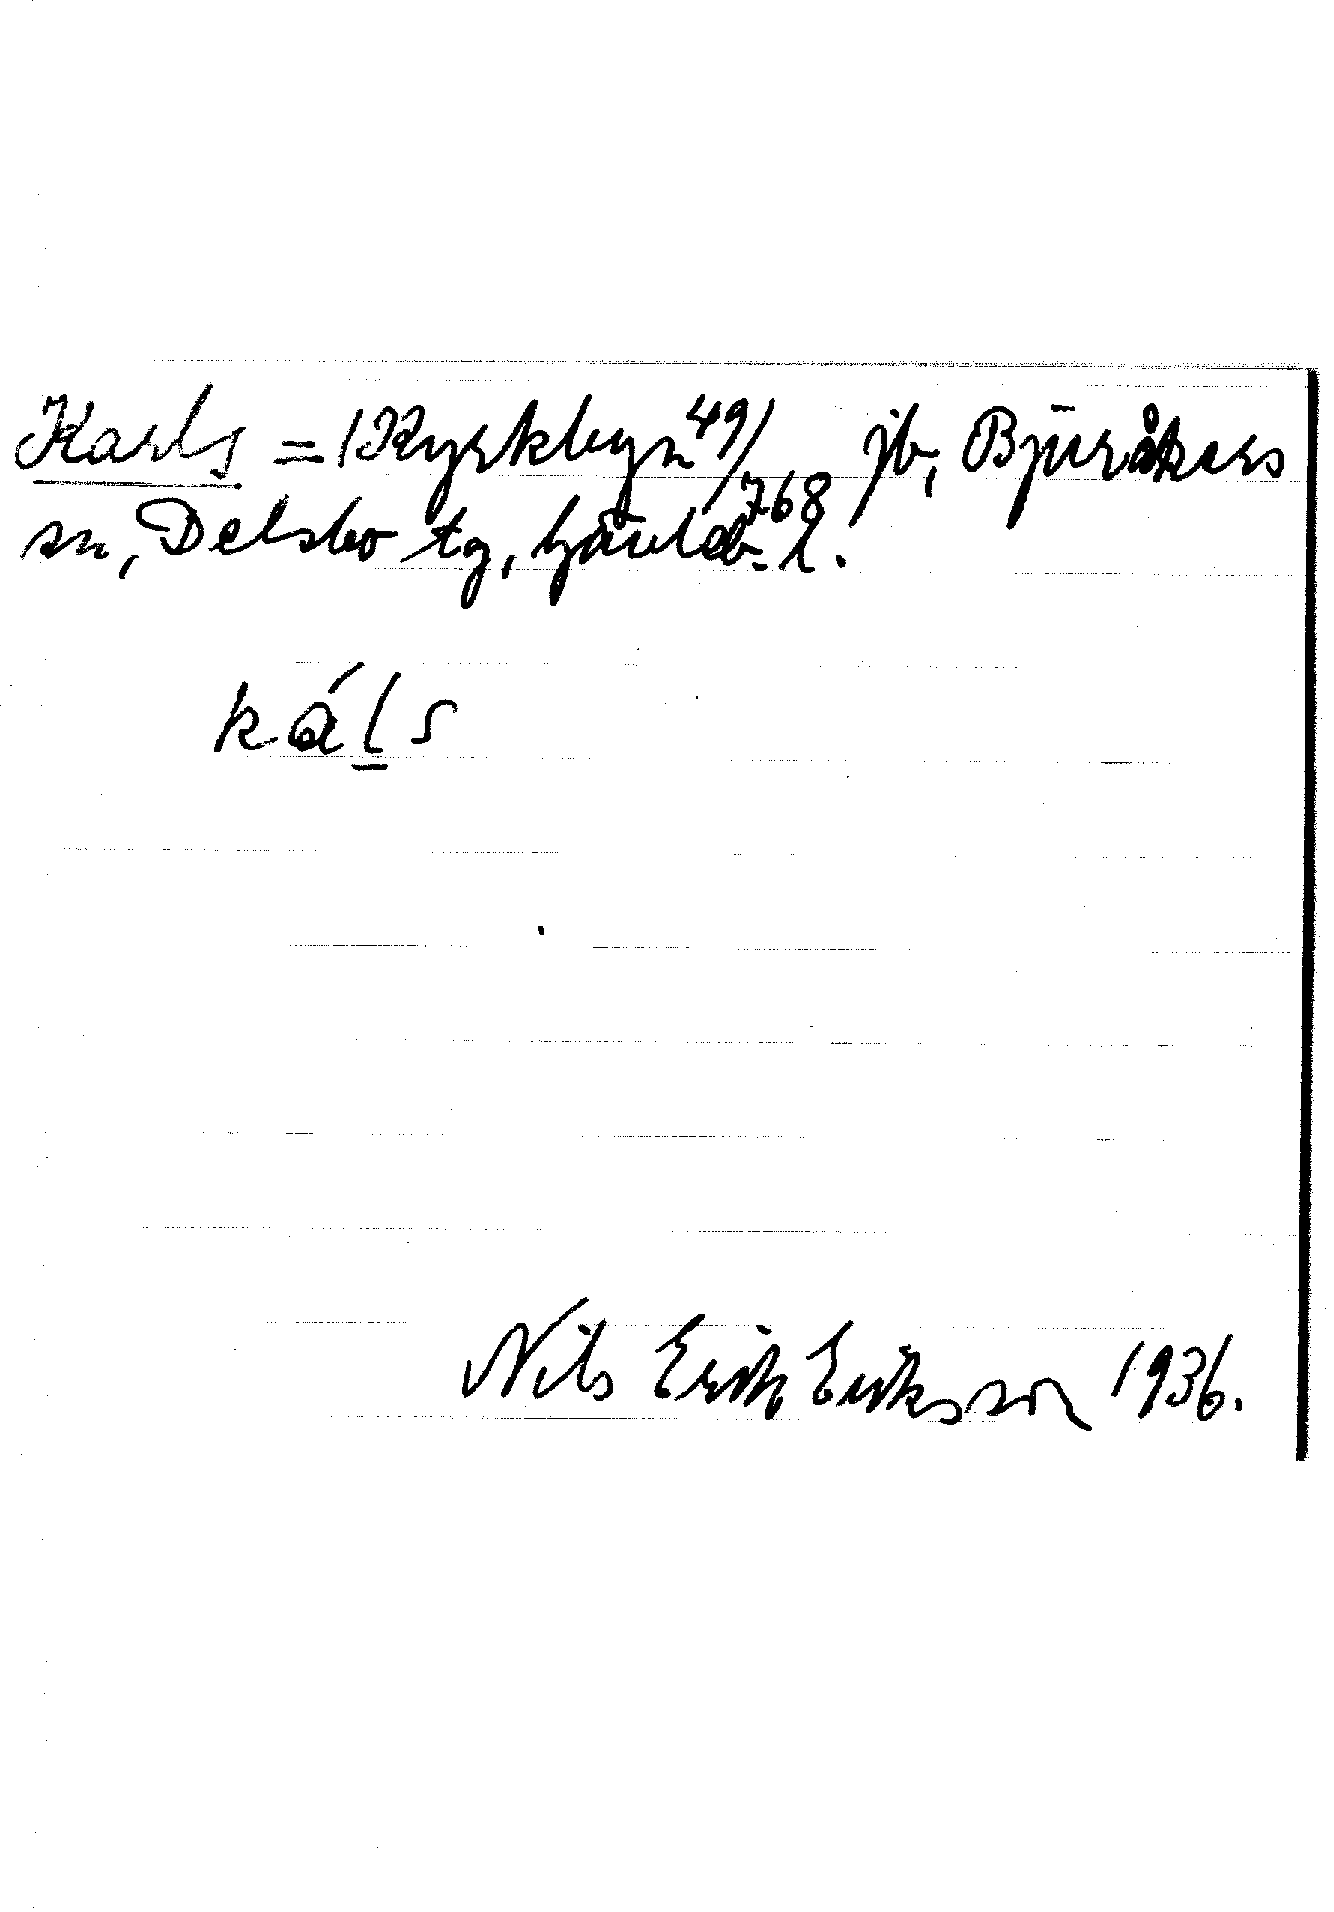 Karls = 1 Kyrkbyn 49/768 jb, Bjuråkers
sn, Delsbo tg, Gävleb. l.
káḻs
Nils Erik Eriksson 1936.